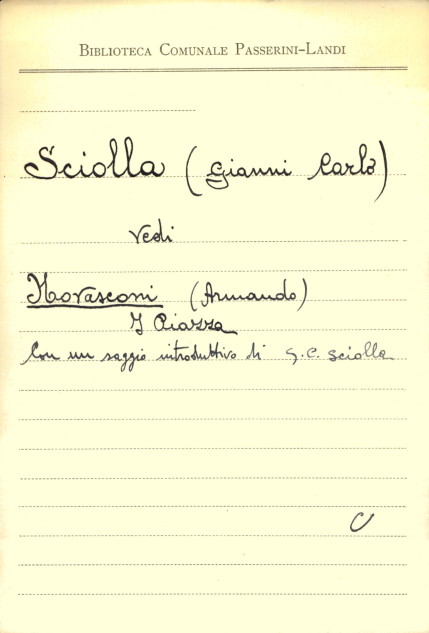 BIBLIOTECA COMUNALE PASSERINI-LANDI
Sciolla (Gianni Carlo)
Vedi
Novasconi (Armando)
I Piazza
Con un saggio introduttivo di G. C. Sciolla
C